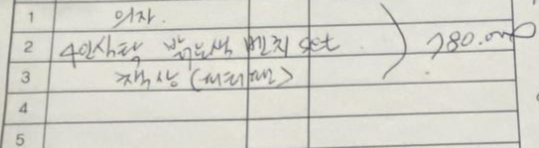 1 의자.
2 4인식탁 밝은색 벤치 set ) 780.000
3 책상 (
4
5